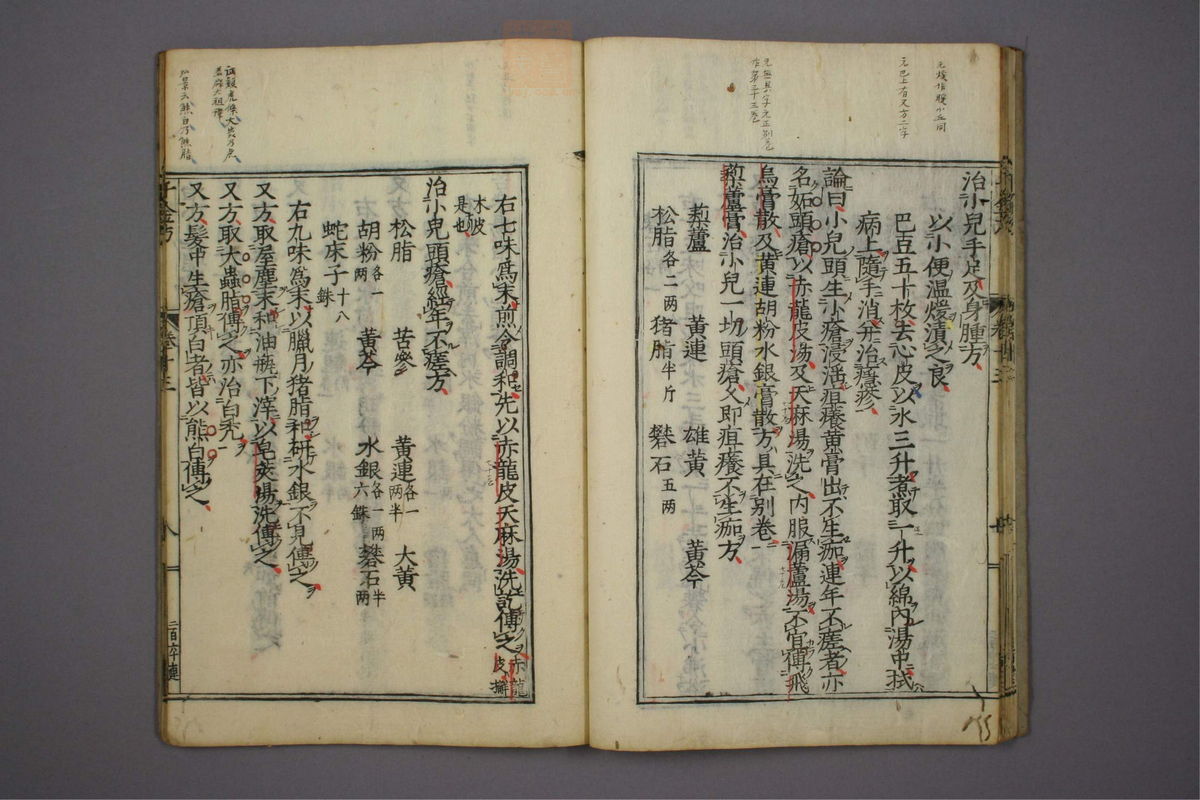 治小兒手足及身腫方
以小便温煖漬之良
巴豆五十枚去心皮以水三升煮取一升以綿內湯中拭
病上隨手消并治癮疹
論曰小兒頭生小瘡浸淫疽癢黃膏出不生痂連年不瘥者亦
名妬頭瘡以赤龍皮湯及天麻湯洗之內服漏蘆湯不宜傅飛
烏膏散及黃連胡粉水銀膏散方具在別卷
藜蘆膏治小兒一切頭瘡久即疽癢不生痂方
藜蘆 黃連 雄黃 黃芩
松脂各二兩 猪脂半斤 礬石五兩
右七味為末煎令調和先以赤龍皮天麻湯洗訖傅之赤龍皮槲
木皮是也
治小兒頭瘡經年不瘥方
松脂 苦參 黃連各一兩半 大黃
胡粉各一兩 黃芩 水銀各一兩六銖 礬石半兩
蛇床子十八銖
右九味為末以臘月猪脂和研水銀不見傅之
又方取屋塵末和油瓶下滓以皂莢湯洗傅之
又方取大蟲脂傅之亦治白禿
又方髮中生瘡頂白者皆以熊白傅之